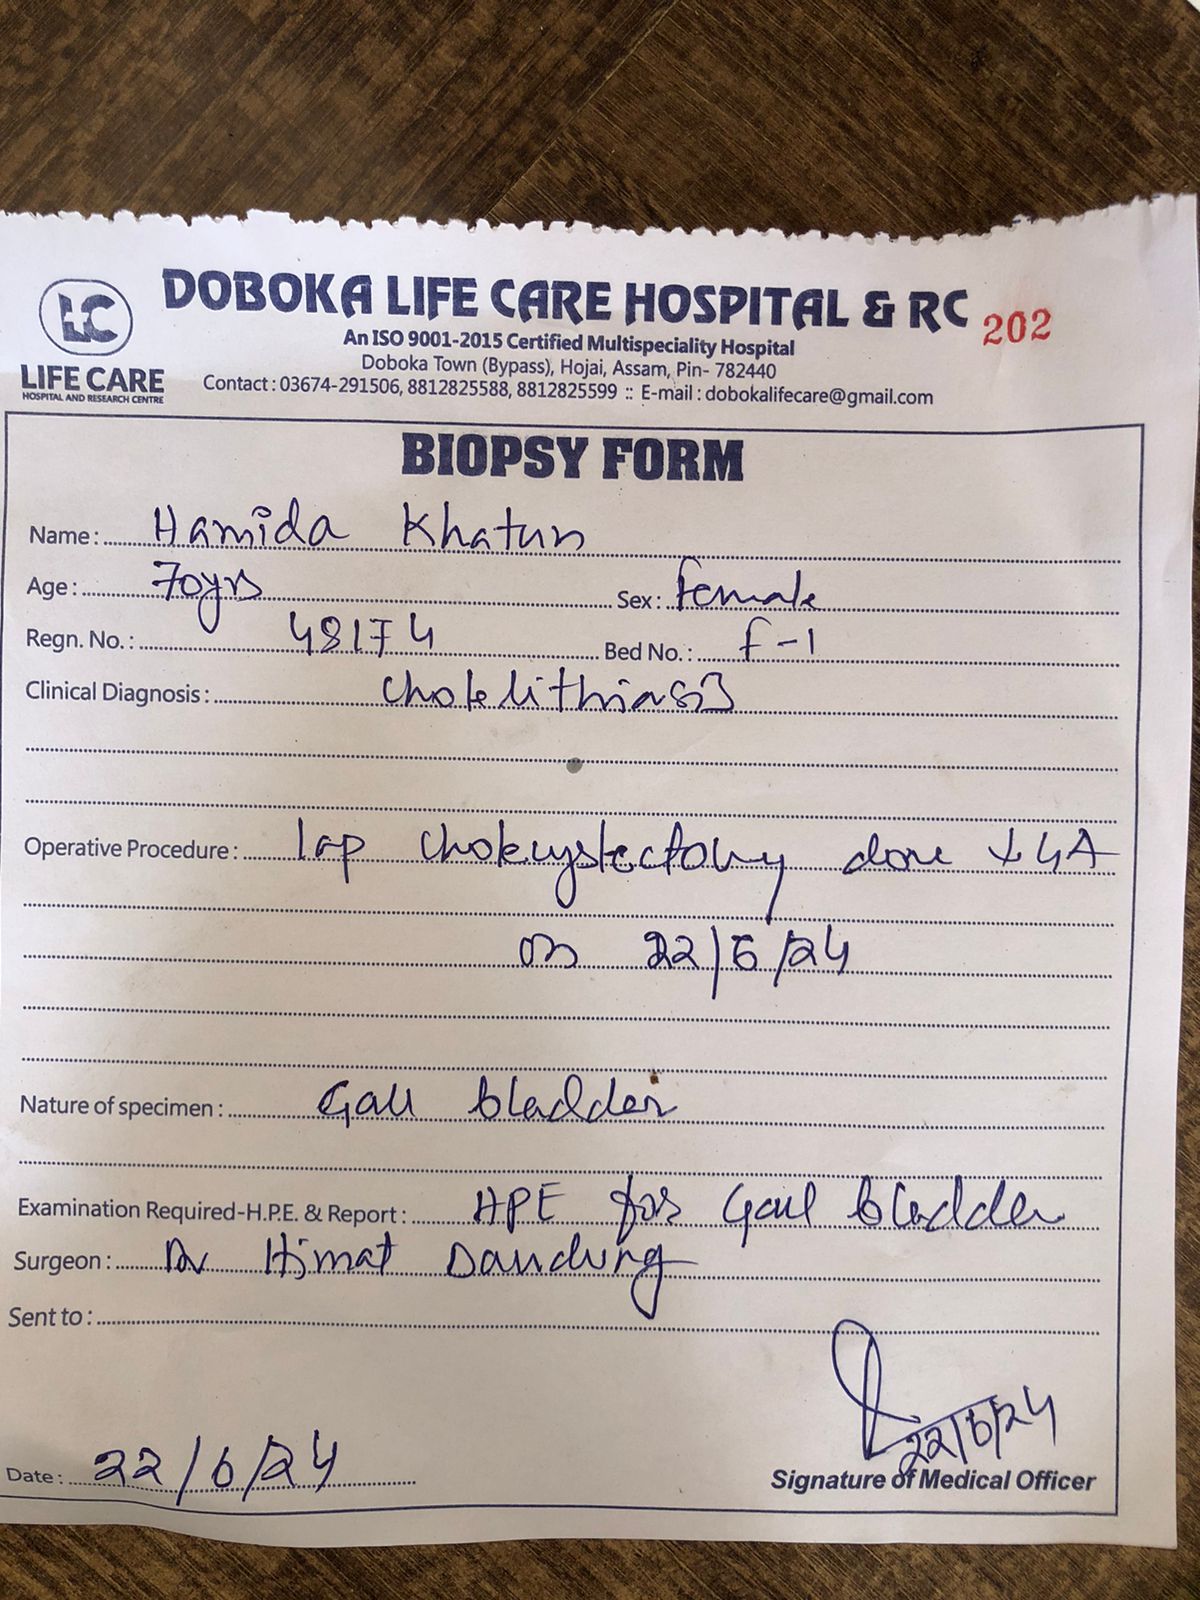 LC
LIFE CARE
HOSPITAL AND RESEARCH CENTRE
DOBOKA LIFE CARE HOSPITAL & RC 202
An ISO 9001-2015 Certified Multispeciality Hospital
Doboka Town (Bypass), Hojai, Assam, Pin- 782440
Contact : 03674-291506, 8812825588, 8812825599 :: E-mail : dobokalifecare@gmail.com
BIOPSY FORM
Name : Hamida Khatun
Age : 70yrs Sex : Female
Regn. No. : 48174 Bed No. : F-1
Clinical Diagnosis : Cholelithiasis
Operative Procedure : lap cholecystectomy done GA
on 22/6/24
Nature of specimen : Gall bladder
Examination Required-H.P.E. & Report : HPE for Gall bladder
Surgeon : Dr Himat
Sent to :
22/6/24
Date : 22/6/24
Signature of Medical Officer